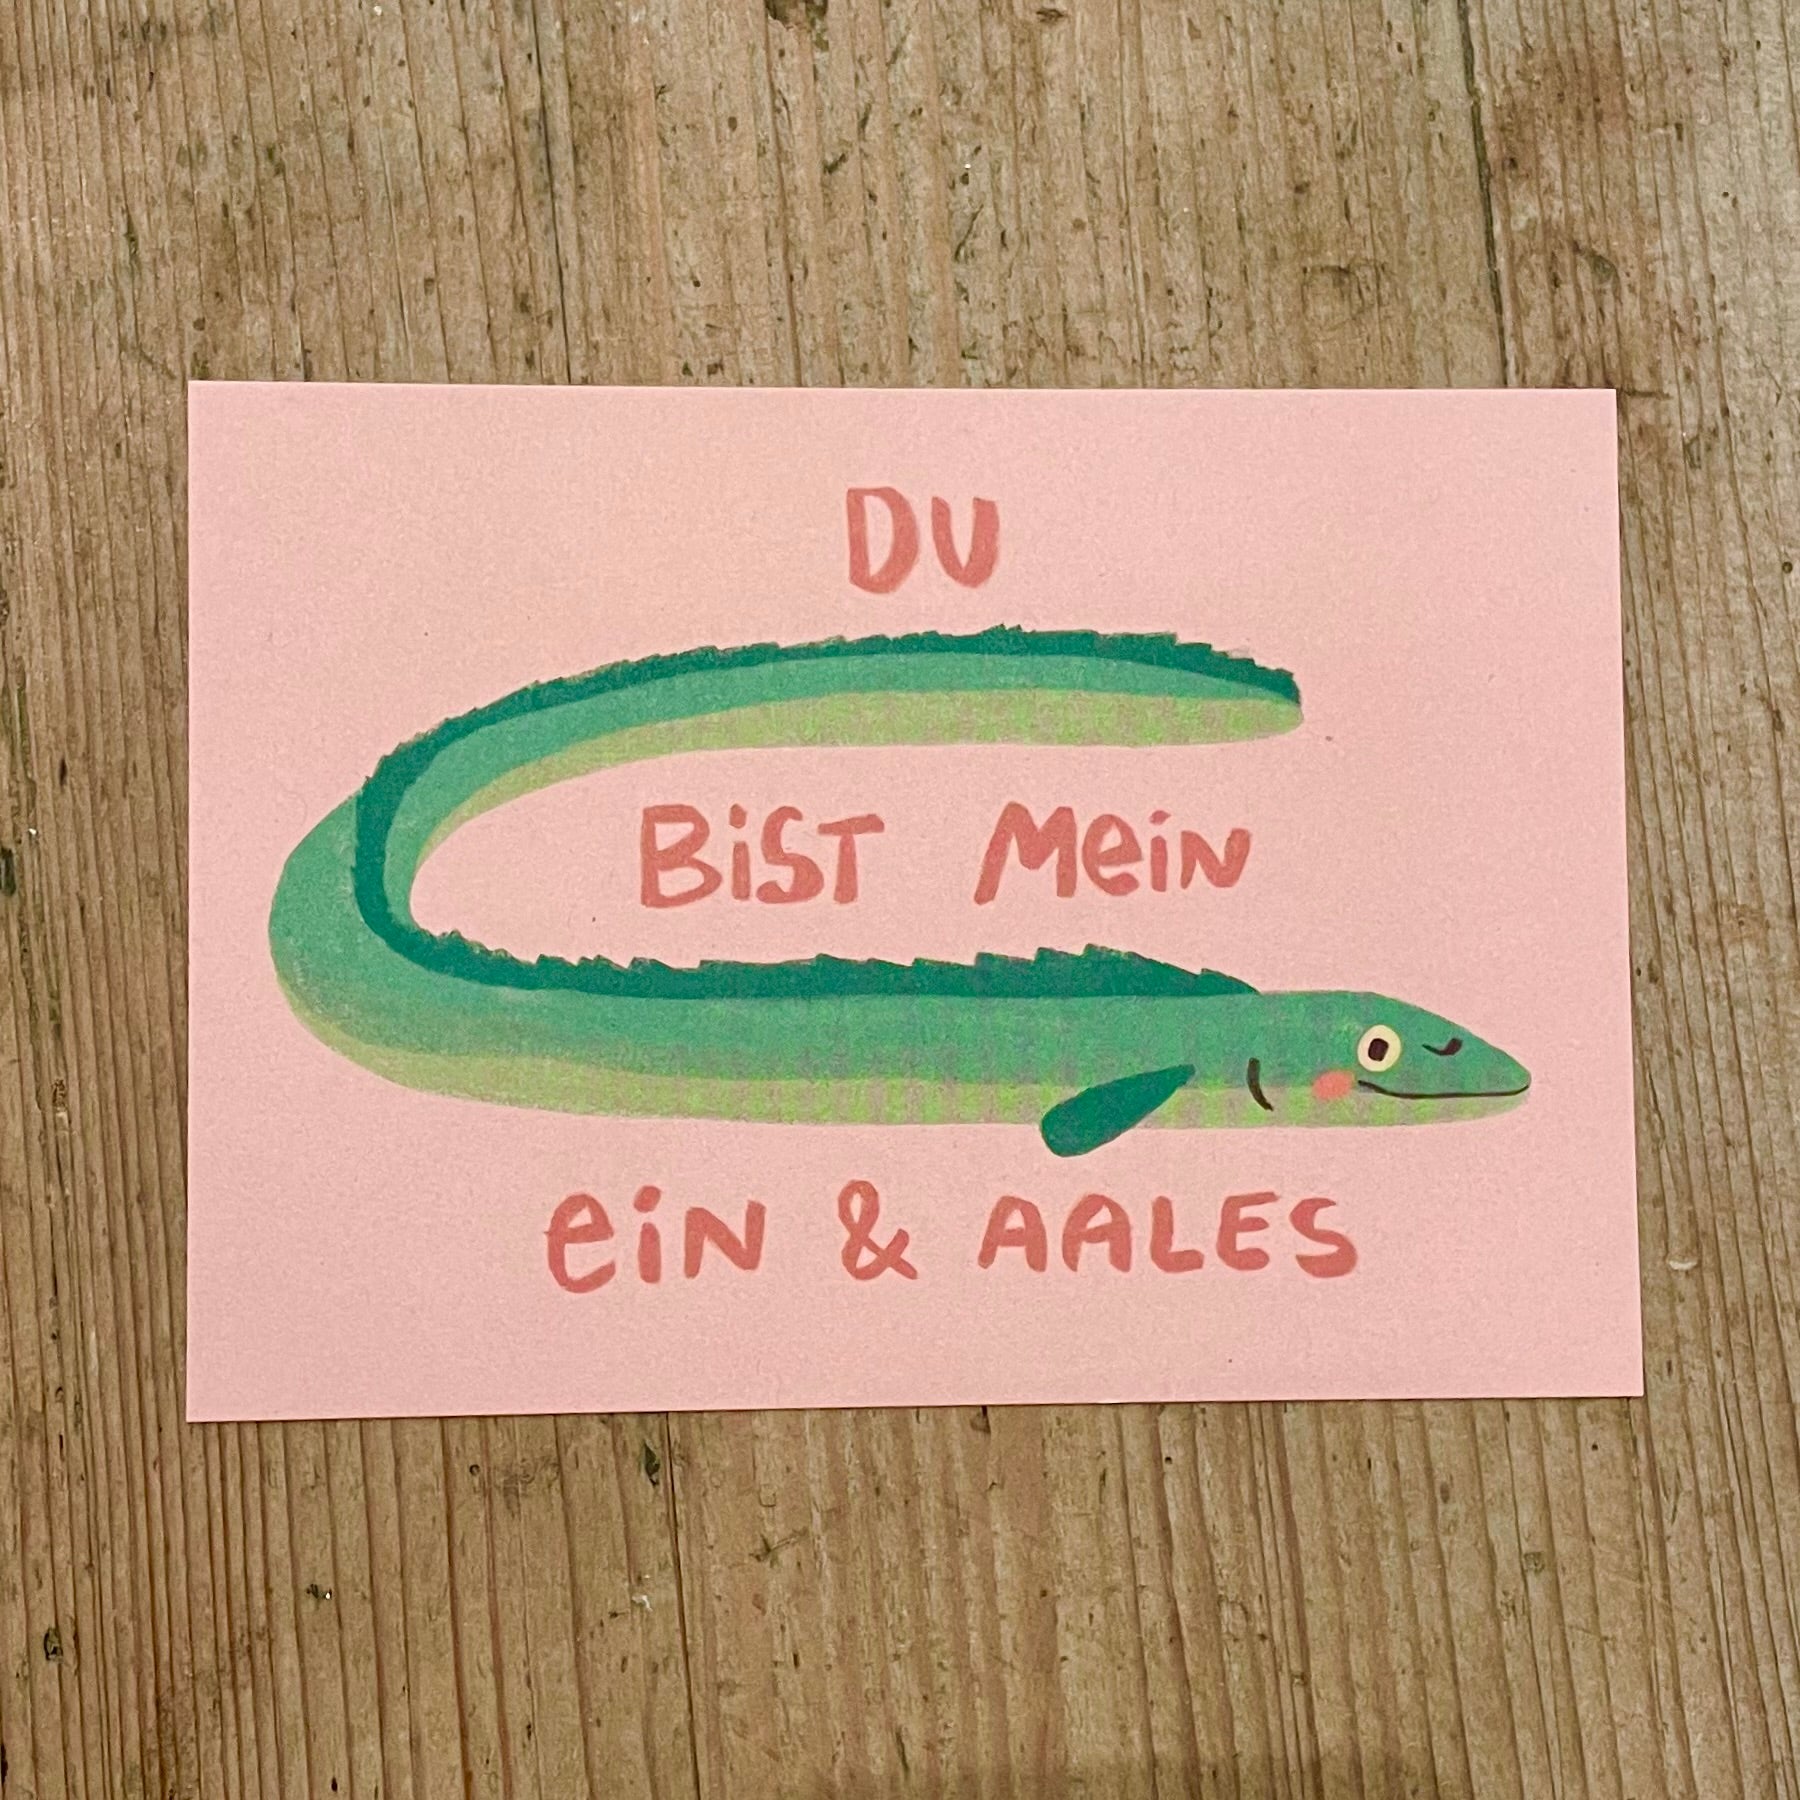 DU
BiST MeiN
eiN & AALES